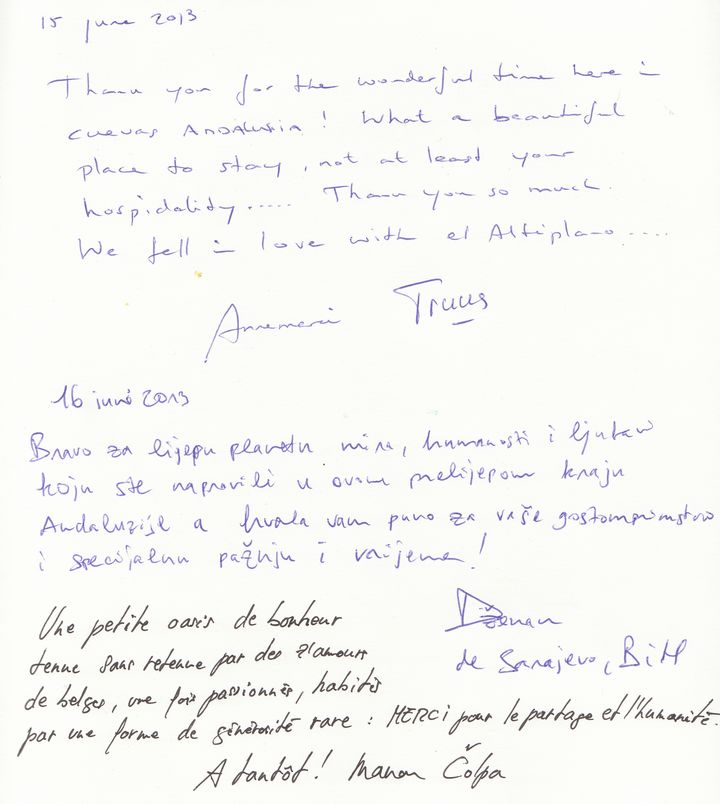 15 june 2013
Thank you for the wonderful time here in
cuevas Andalusia! What a beautiful
place to stay, not at least your
hospidality..... Thank you so much.
We fell in love with el Altiplano....
Annemarie Truus
16 juni 2013
Bravo za lijepu planetu mira, humanosti i ljubavi
koju ste napravili u ovom prelijepom kraju
Andaluzije a hvala vam puno za vaše gostomprimstvo
i specijalnu pažnju i vrijeme!
Dženan
de Sarajevo, BiH
Une petite oasis de bonheur
tenue sans retenue par des z'amours
de belges, une fois passionnés, habités
par une forme de générosité rare : MERCI pour le partage et l'humanité.
A tantôt! Manon Čolpa